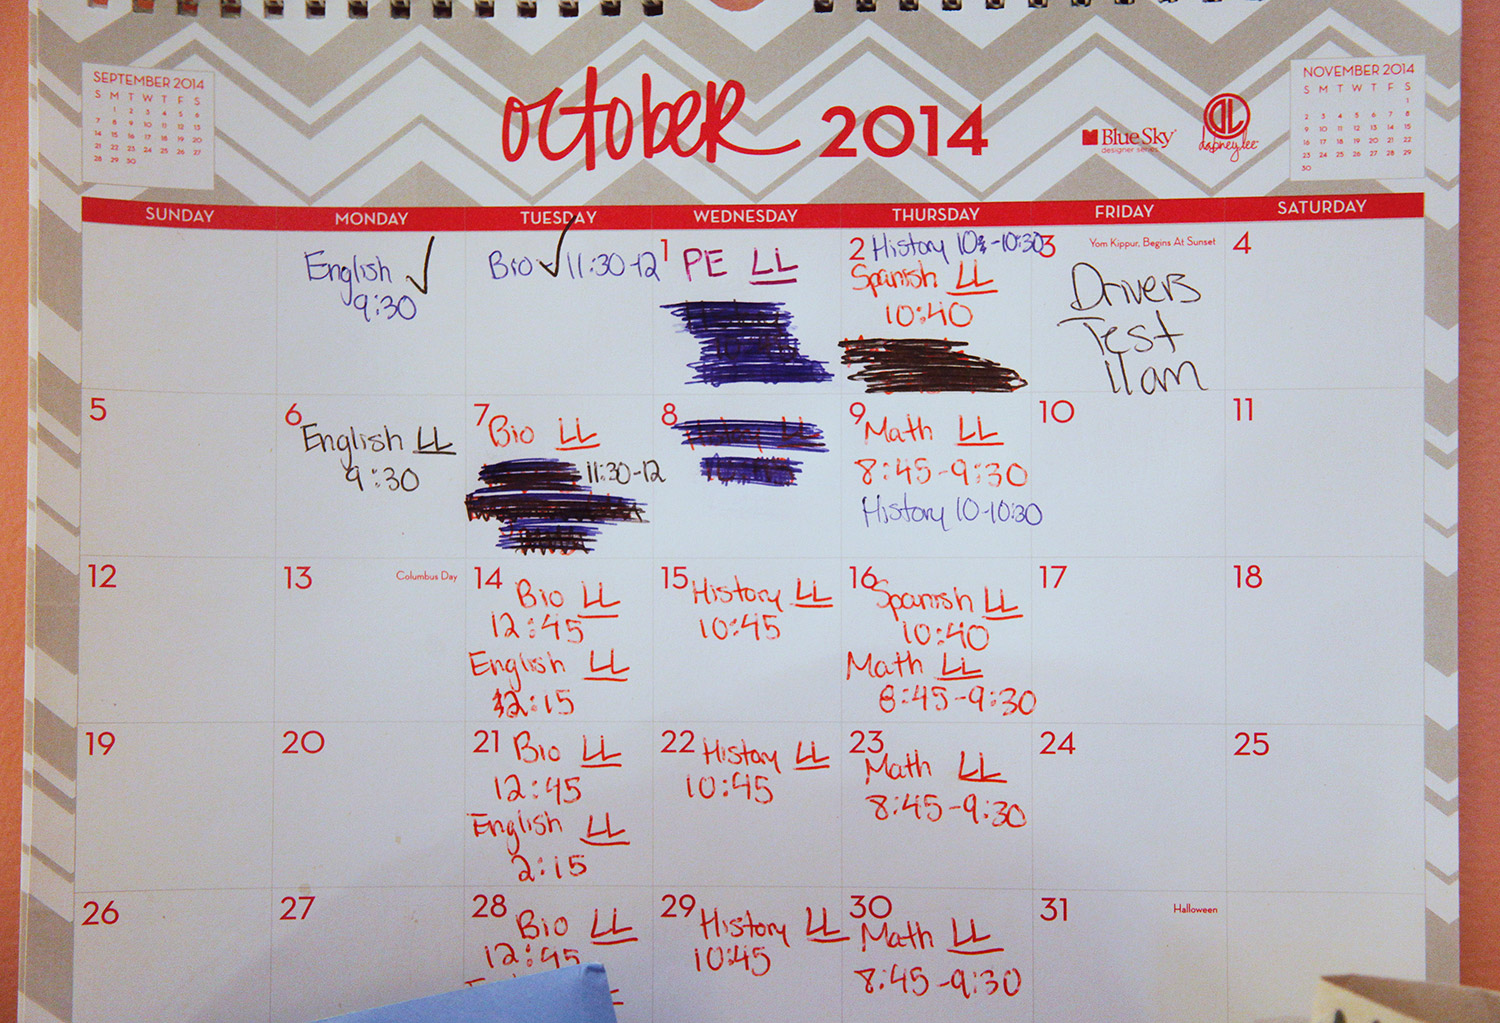 SEPTEMBER 2014
S M T W T F S
1 2 3 4 5 6
7 8 9 10 11 12 13
14 15 16 17 18 19 20
21 22 23 24 25 26 27
28 29 30
October 2014
Blue Sky
designer series
DL
dabney lee
NOVEMBER 2014
S M T W T F S
1
2 3 4 5 6 7 8
9 10 11 12 13 14 15
16 17 18 19 20 21 22
23 24 25 26 27 28 29
30
SUNDAY MONDAY TUESDAY WEDNESDAY THURSDAY FRIDAY SATURDAY
English
9:30
Bio 11:30-12
1 PE LL
2 History 10-10:30
Spanish LL
10:40
3 Yom Kippur, Begins At Sunset
Drivers
Test
11am
4
5
6
English LL
9:30
7
Bio LL
11:30-12
8
9
Math LL
8:45-9:30
History 10-10:30
10
11
12
13 Columbus Day
14
Bio LL
12:45
English LL
2:15
15 History LL
10:45
16
Spanish LL
10:40
Math LL
8:45-9:30
17
18
19
20
21 Bio LL
12:45
English LL
2:15
22 History LL
10:45
23
Math LL
8:45-9:30
24
25
26
27
28
Bio LL
12:45
29 History LL
10:45
30
Math LL
8:45-9:30
31 Halloween